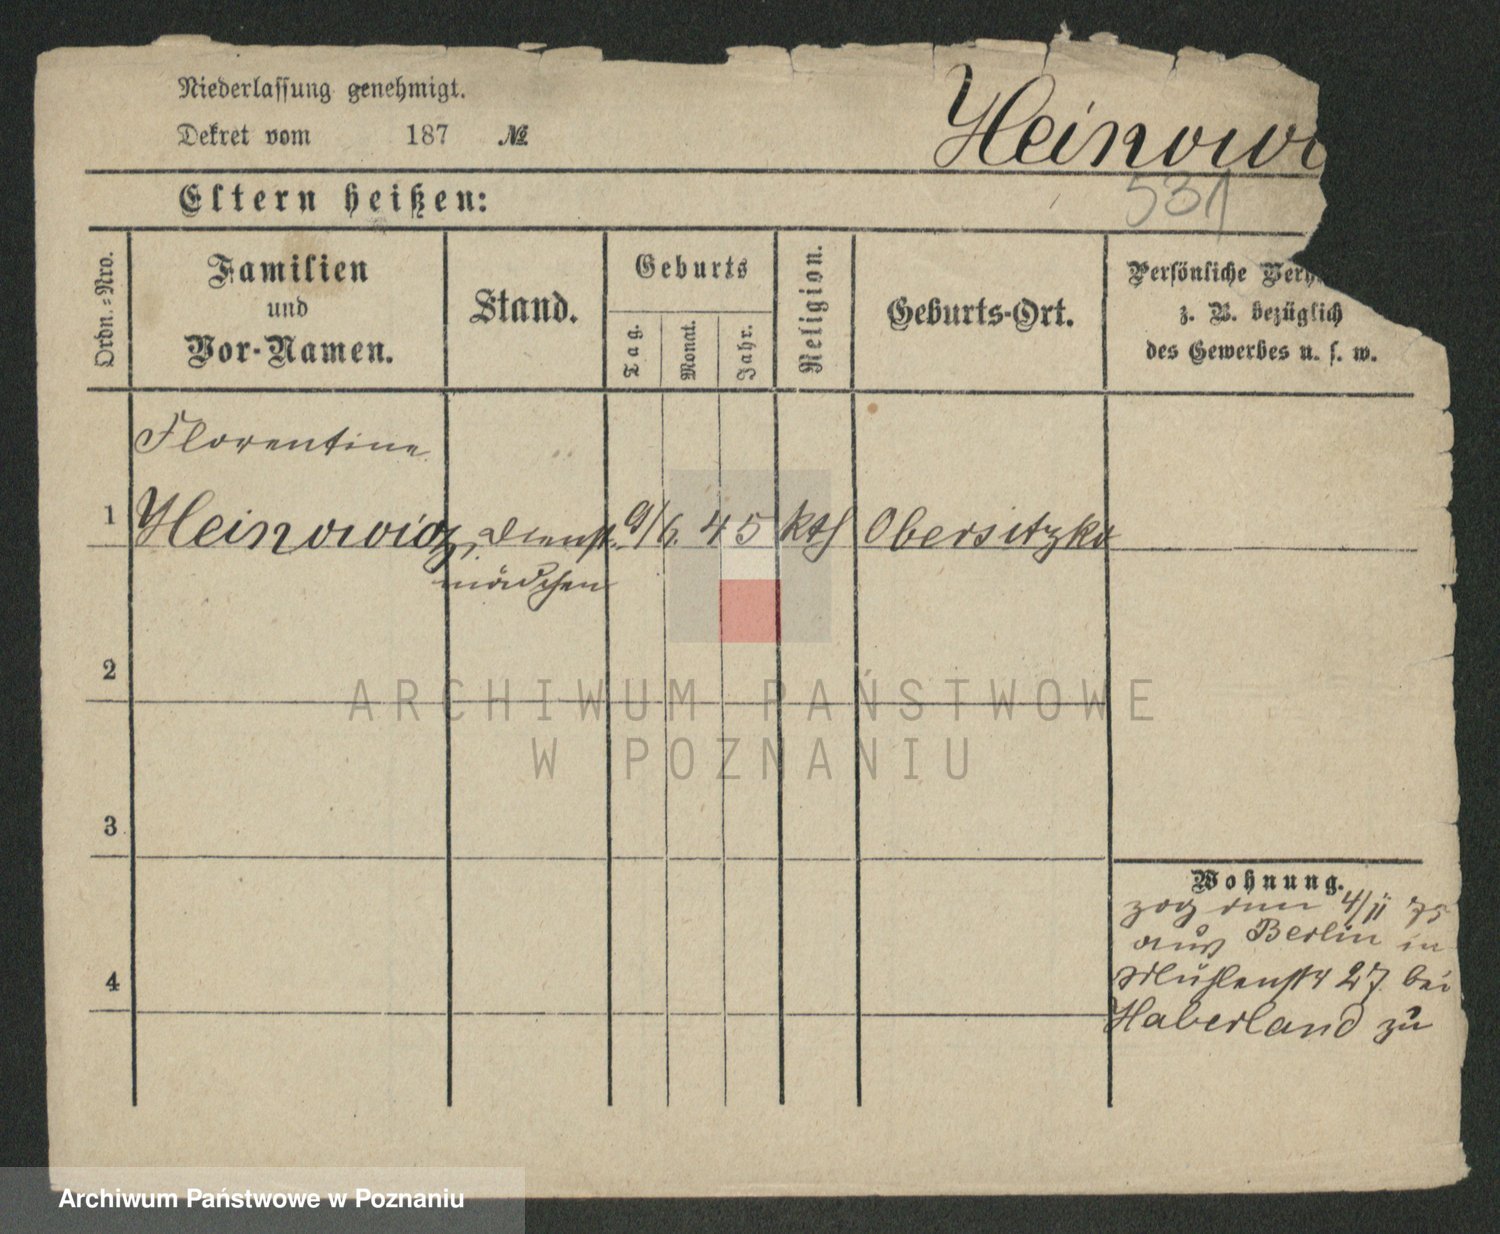 Niederlassung genehmigt.
Dekret vom 187 №
Heinowi
531
Eltern heißen:
Ordn.-Nro.
Familien
und
Vor-Namen.
Stand.
Geburts
Tag.
Monat.
Jahr.
Religion.
Geburts-Ort.
Persönliche Verh
z. B. bezüglich
des Gewerbes u. s. w.
Florentine
1 Heinowicz, Dienst- 9/6. 45 kth Obersitzko
mädchen
2
3
4
Wohnung.
zog am 4/11 75
aus Berlin in
Mühlenstr 27 bei
Haberland zu
ARCHIWUM PAŃSTWOWE
W POZNANIU
Archiwum Państwowe w Poznaniu